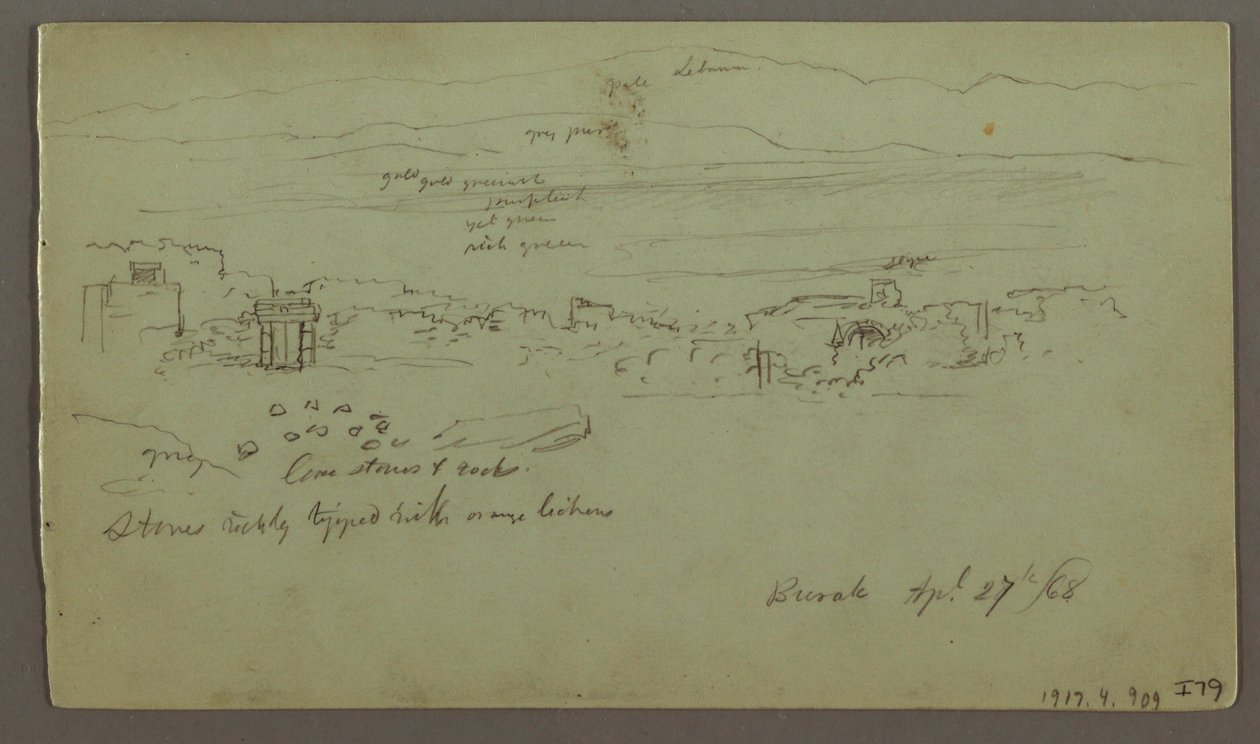 pale Lebanon
grey pur
gold gold greenish
purplish
yel green
rich green
grey
loose stones & rocks.
Stones richly tipped with orange lichens
Burak Apl 27th/68
1917.4.909 I79